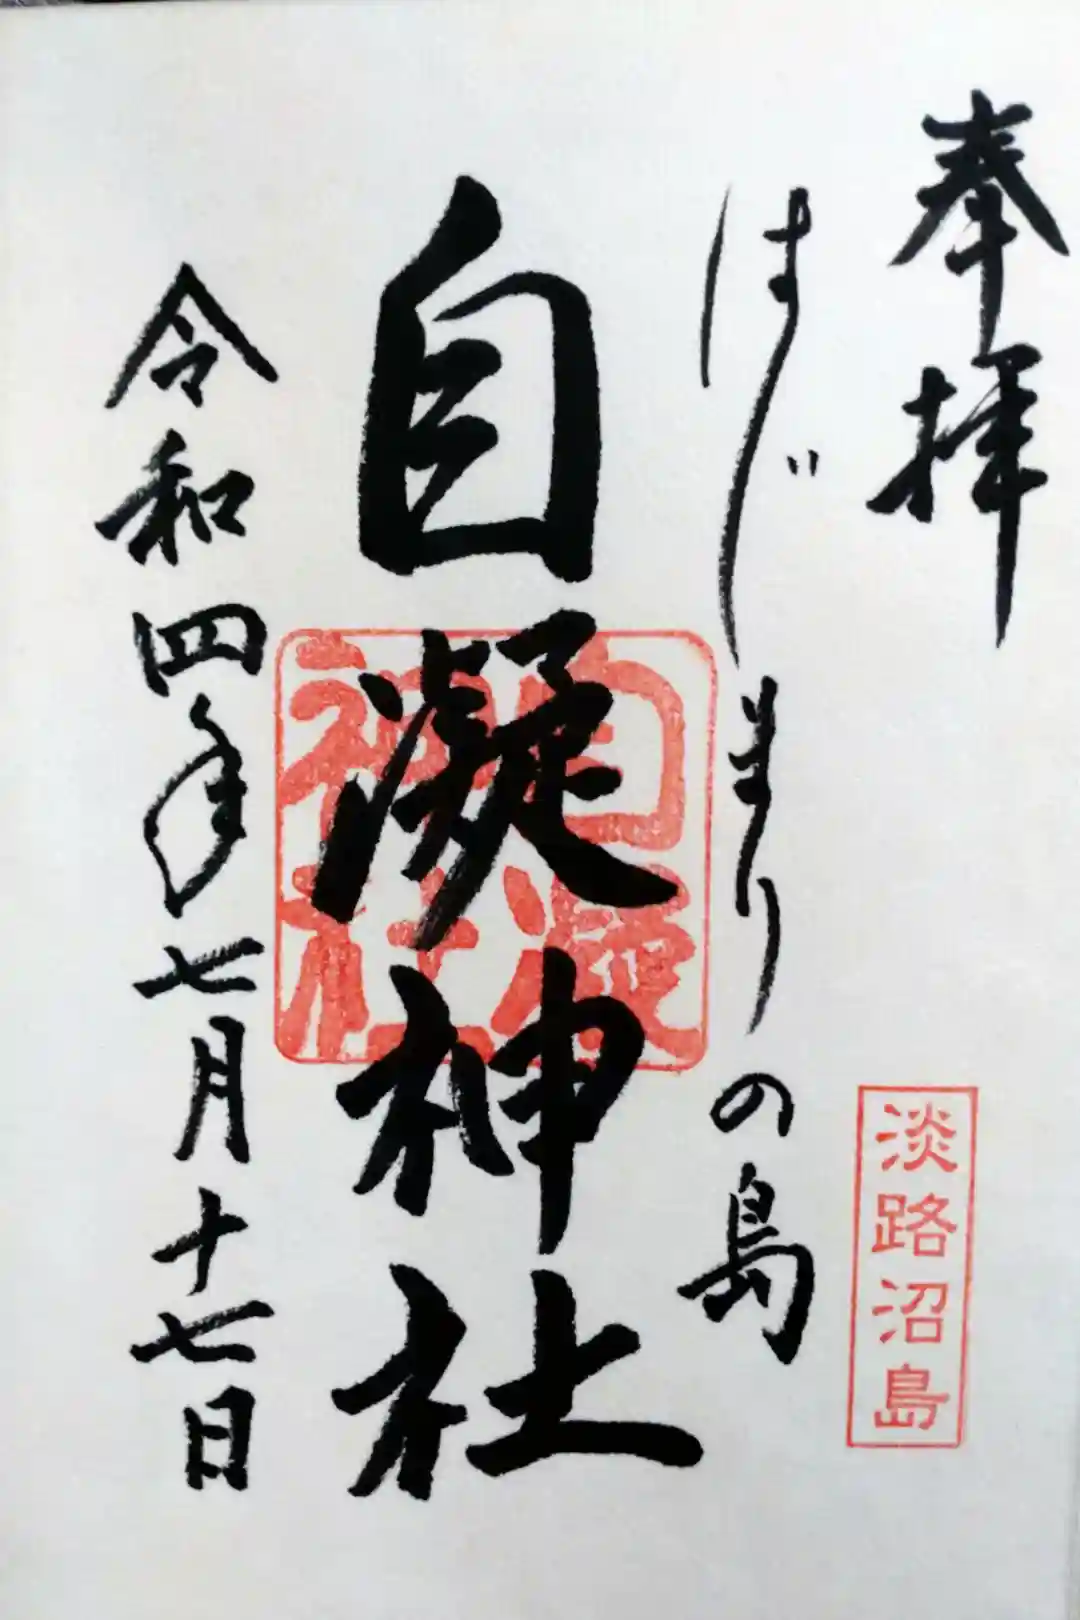 奉拝
はじまりの島
淡路沼島
自凝神社
自凝神社
令和四年七月十七日